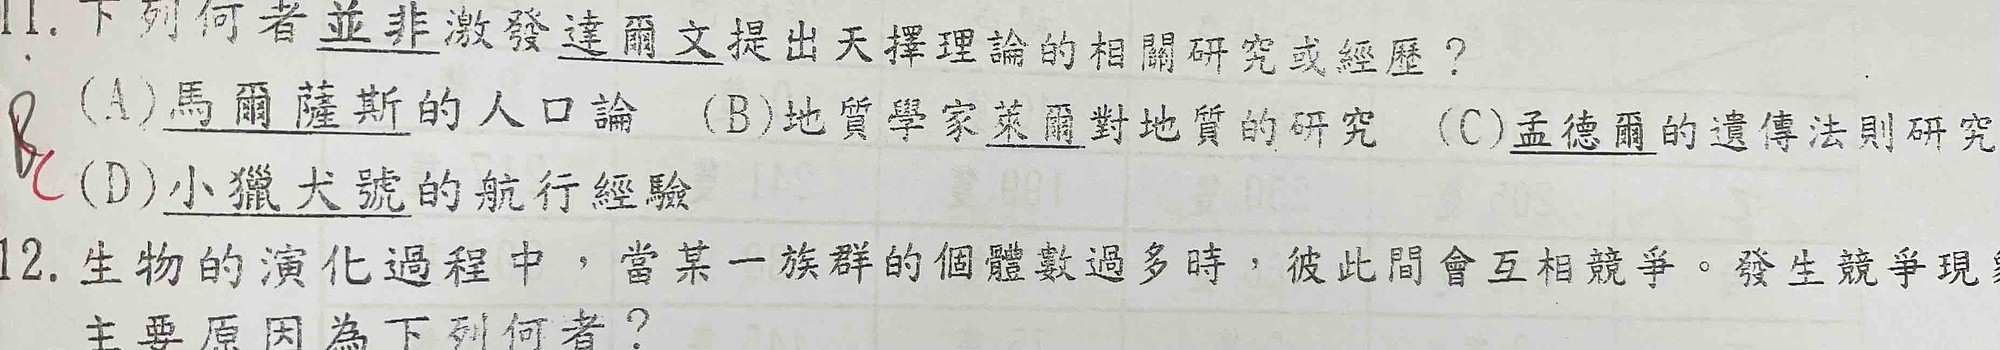 11. 下列何者並非激發達爾文提出天擇理論的相關研究或經歷？
(A)馬爾薩斯的人口論 (B)地質學家萊爾對地質的研究 (C)孟德爾的遺傳法則研究
B
C
(D)小獵犬號的航行經驗
12. 生物的演化過程中，當某一族群的個體數過多時，彼此間會互相競爭。發生競爭現
主要原因為下列何者？